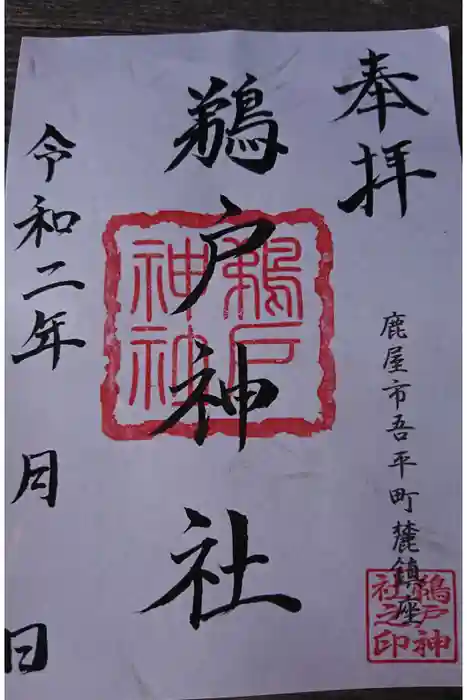 奉拝
鹿屋市吾平町麓鎮座
鵜戸神社
令和二年 月 日
鵜戸
神社
鵜戸神
社之印